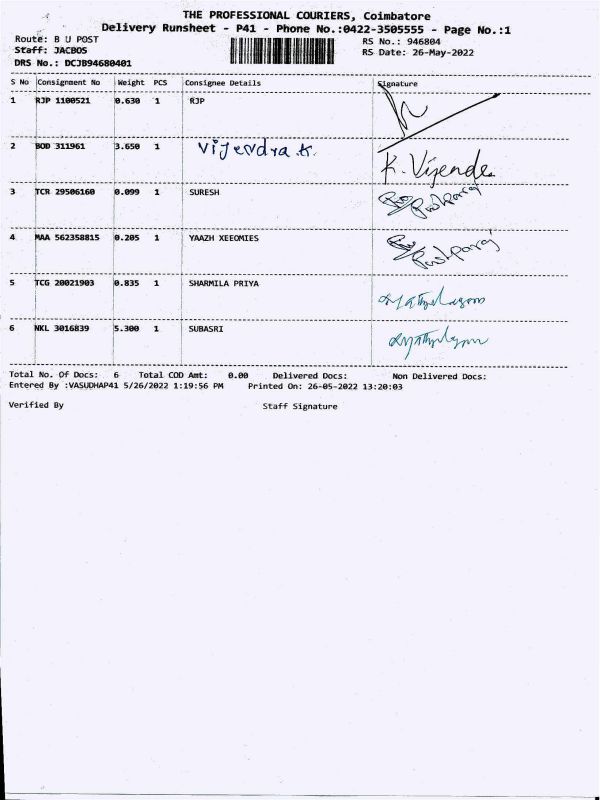 THE PROFESSIONAL COURIERS, Coimbatore
Delivery Runsheet - P41 - Phone No.:0422-3505555 - Page No.:1
Route: B U POST RS No.: 946804
Staff: JACBOS RS Date: 26-May-2022
DRS No.: DCJB94680401
S No Consignment No Weight PCS Consignee Details Signature
1 RJP 1100521 0.630 1 RJP
2 BOD 311961 3.650 1 Vijendra.K. K. Vijende
3 TCR 29506160 0.099 1 SURESH
4 MAA 562358815 0.205 1 YAAZH XEEOMIES
5 TCG 20021903 0.835 1 SHARMILA PRIYA
6 NKL 3016839 5.300 1 SUBASRI
Total No. Of Docs: 6 Total COD Amt: 0.00 Delivered Docs: Non Delivered Docs:
Entered By :VASUDHAP41 5/26/2022 1:19:56 PM Printed On: 26-05-2022 13:20:03
Verified By Staff Signature